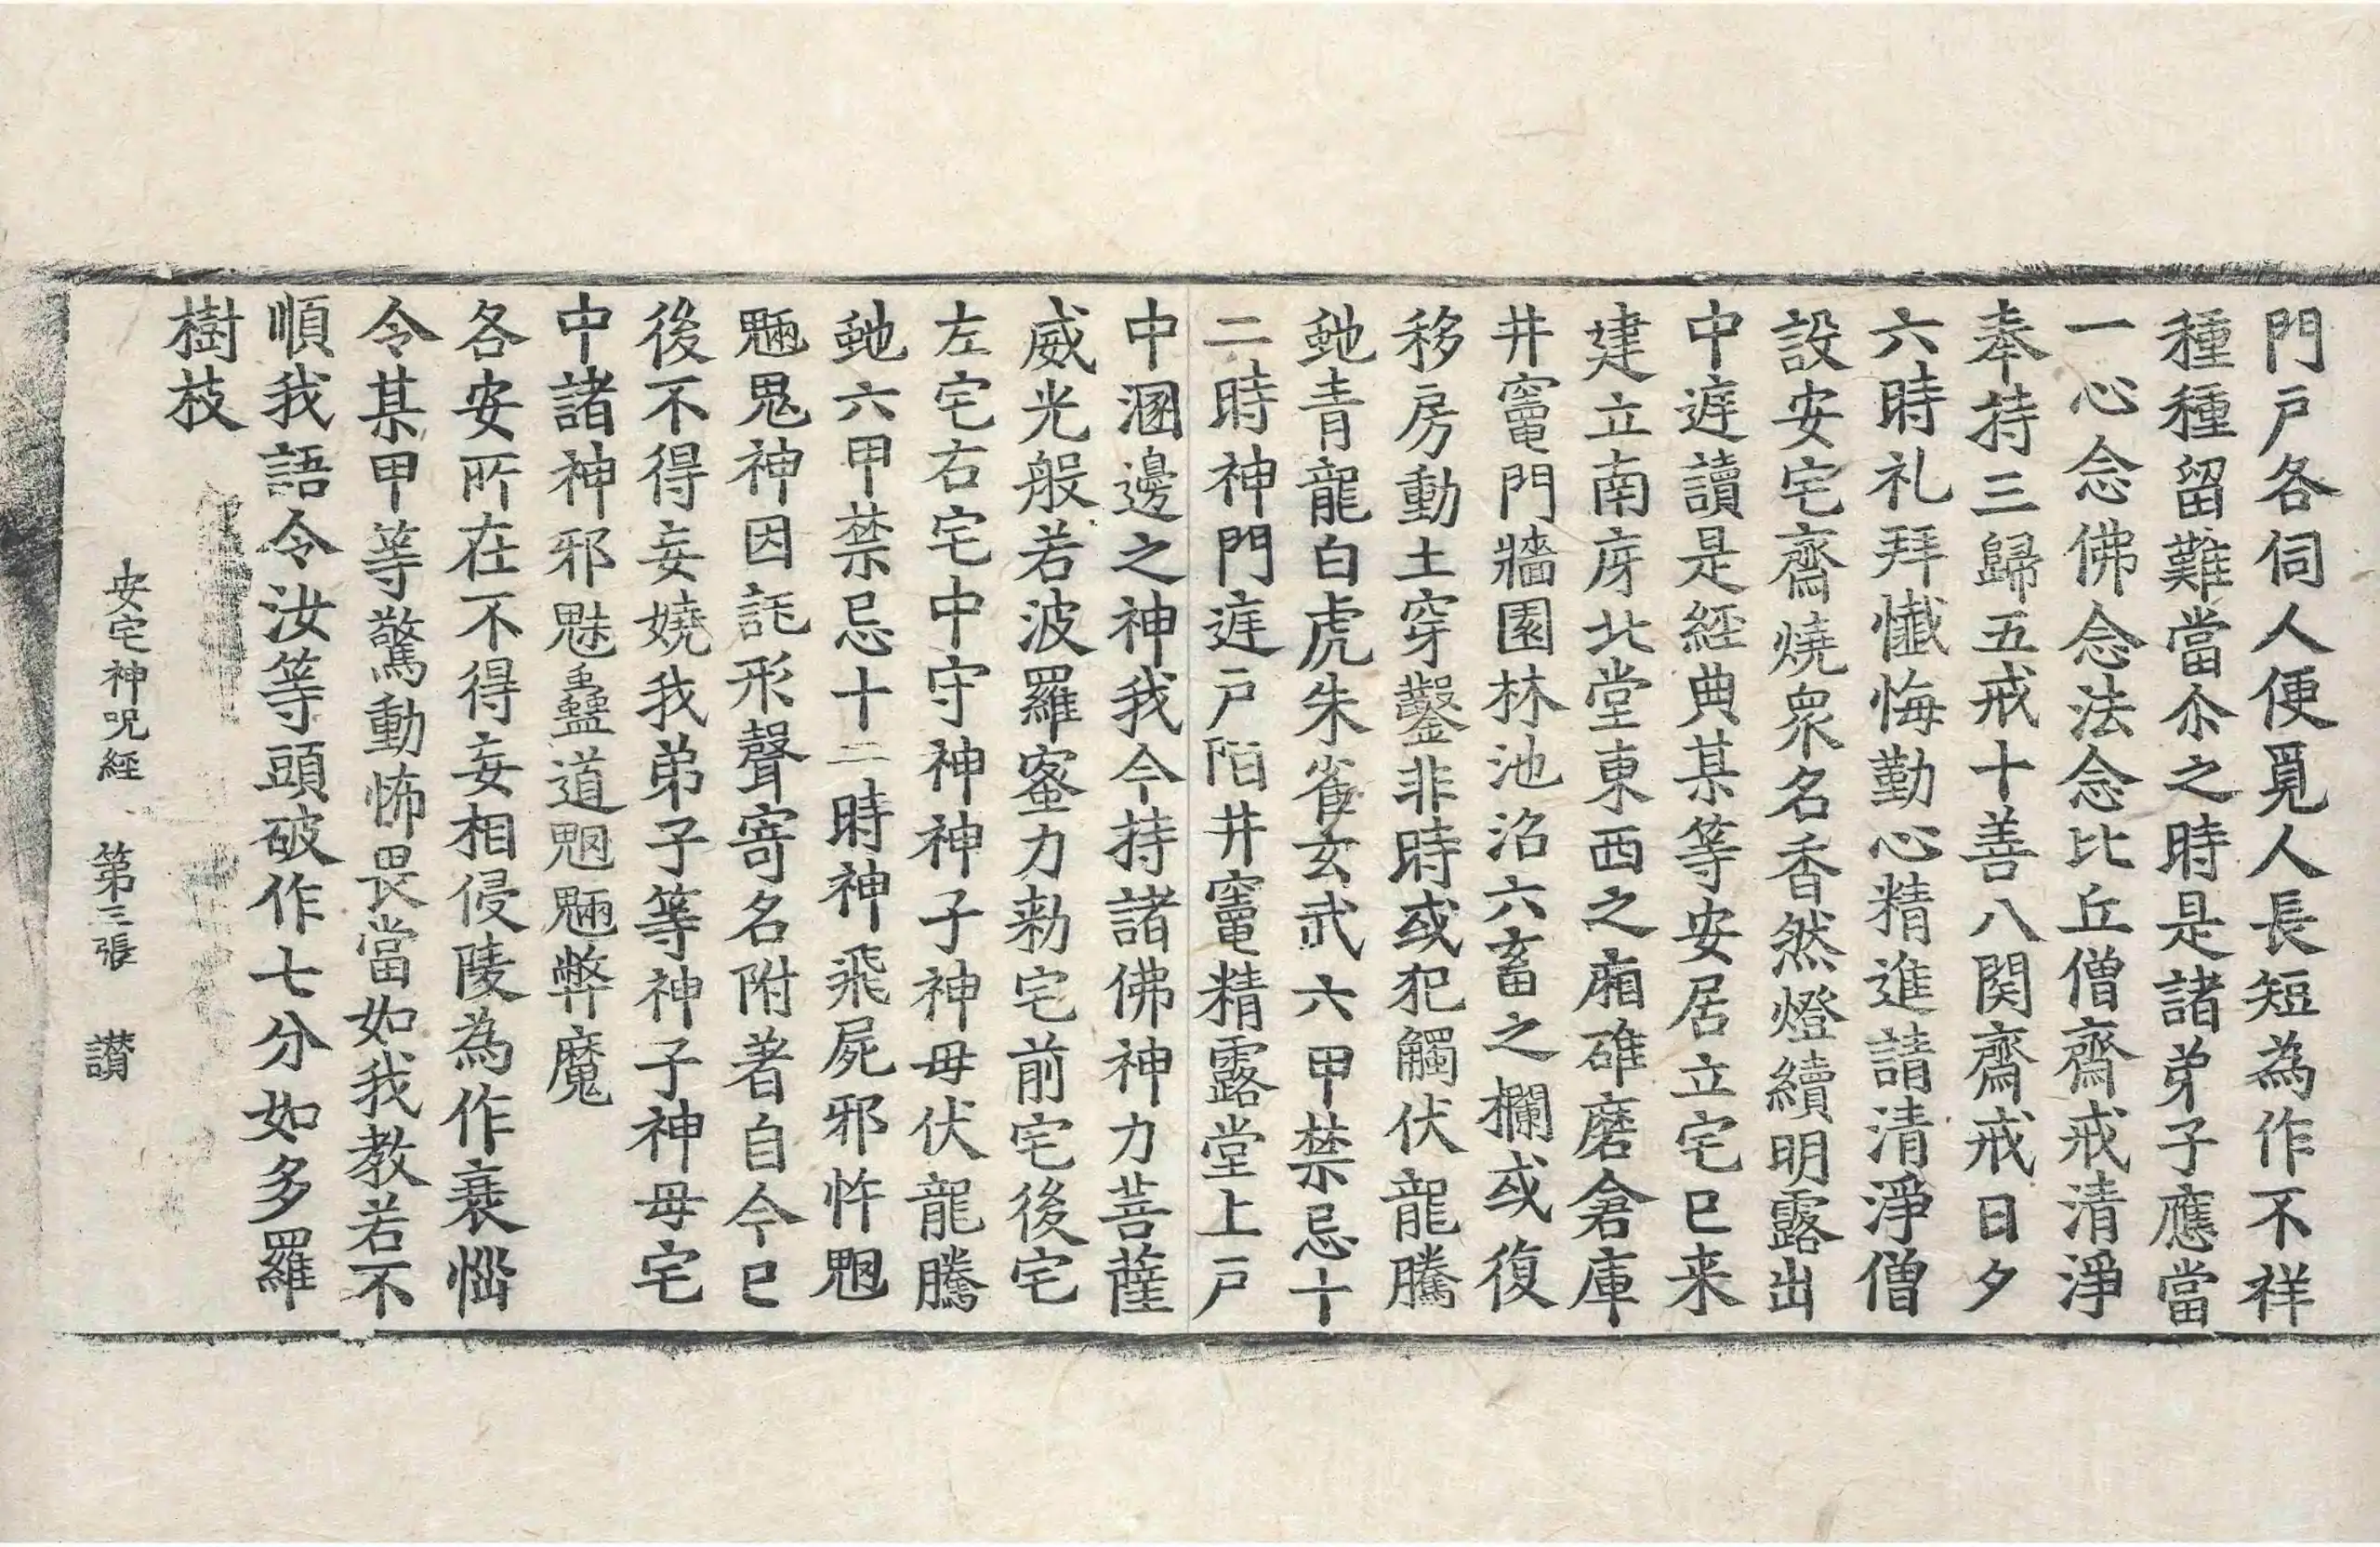 門戸各伺人便覓人長短為作不祥
種種留難當尒之時是諸弟子應當
一心念佛念法念比丘僧齋戒清淨
奉持三歸五戒十善八関齋戒日夕
六時礼拜懺悔勤心精進請清淨僧
設安宅齋燒衆名香然燈續明露出
中庭讀是經典某等安居立宅已来
建立南庌北堂東西之廂碓磨倉庫
井竈門牆園林池沼六畜之欄或復
移房動土穿鑿非時或犯觸伏龍騰
虵青龍白虎朱雀玄武六甲禁忌十
二時神門庭戸陌井竈精露堂上戸
中溷邊之神我今持諸佛神力菩薩
威光般若波羅蜜力勑宅前宅後宅
左宅右宅中守神神子神母伏龍騰
虵六甲禁忌十二時神飛屍邪忤魍
魎鬼神因託形聲寄名附著自今已
後不得妄嬈我弟子等神子神母宅
中諸神邪魅蠱道魍魎弊魔
各安所在不得妄相侵陵為作衰惱
令某甲等驚動怖畏當如我教若不
順我語令汝等頭破作七分如多羅
樹枝
安宅神呪經 第三張 讃